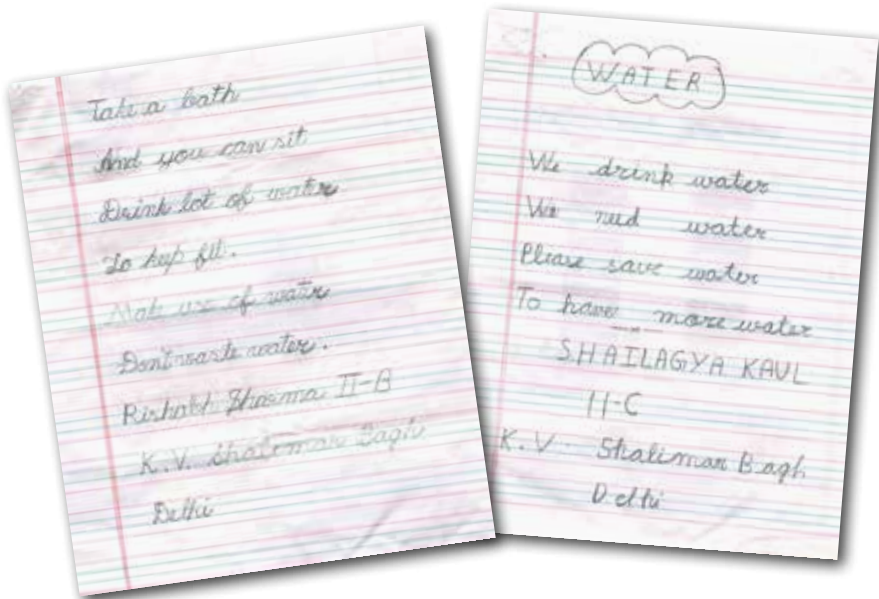 Take a bath
And you can sit
Drink lot of water
To keep fit.
Make use of water
Don't waste water.
Rishabh Sharma II-B
K.V. Shalimar Bagh
Delhi
WATER
We drink water
We need water
Please save water
To have more water
SHAILAGYA KAUL
II-C
K.V. Shalimar Bagh
Delhi